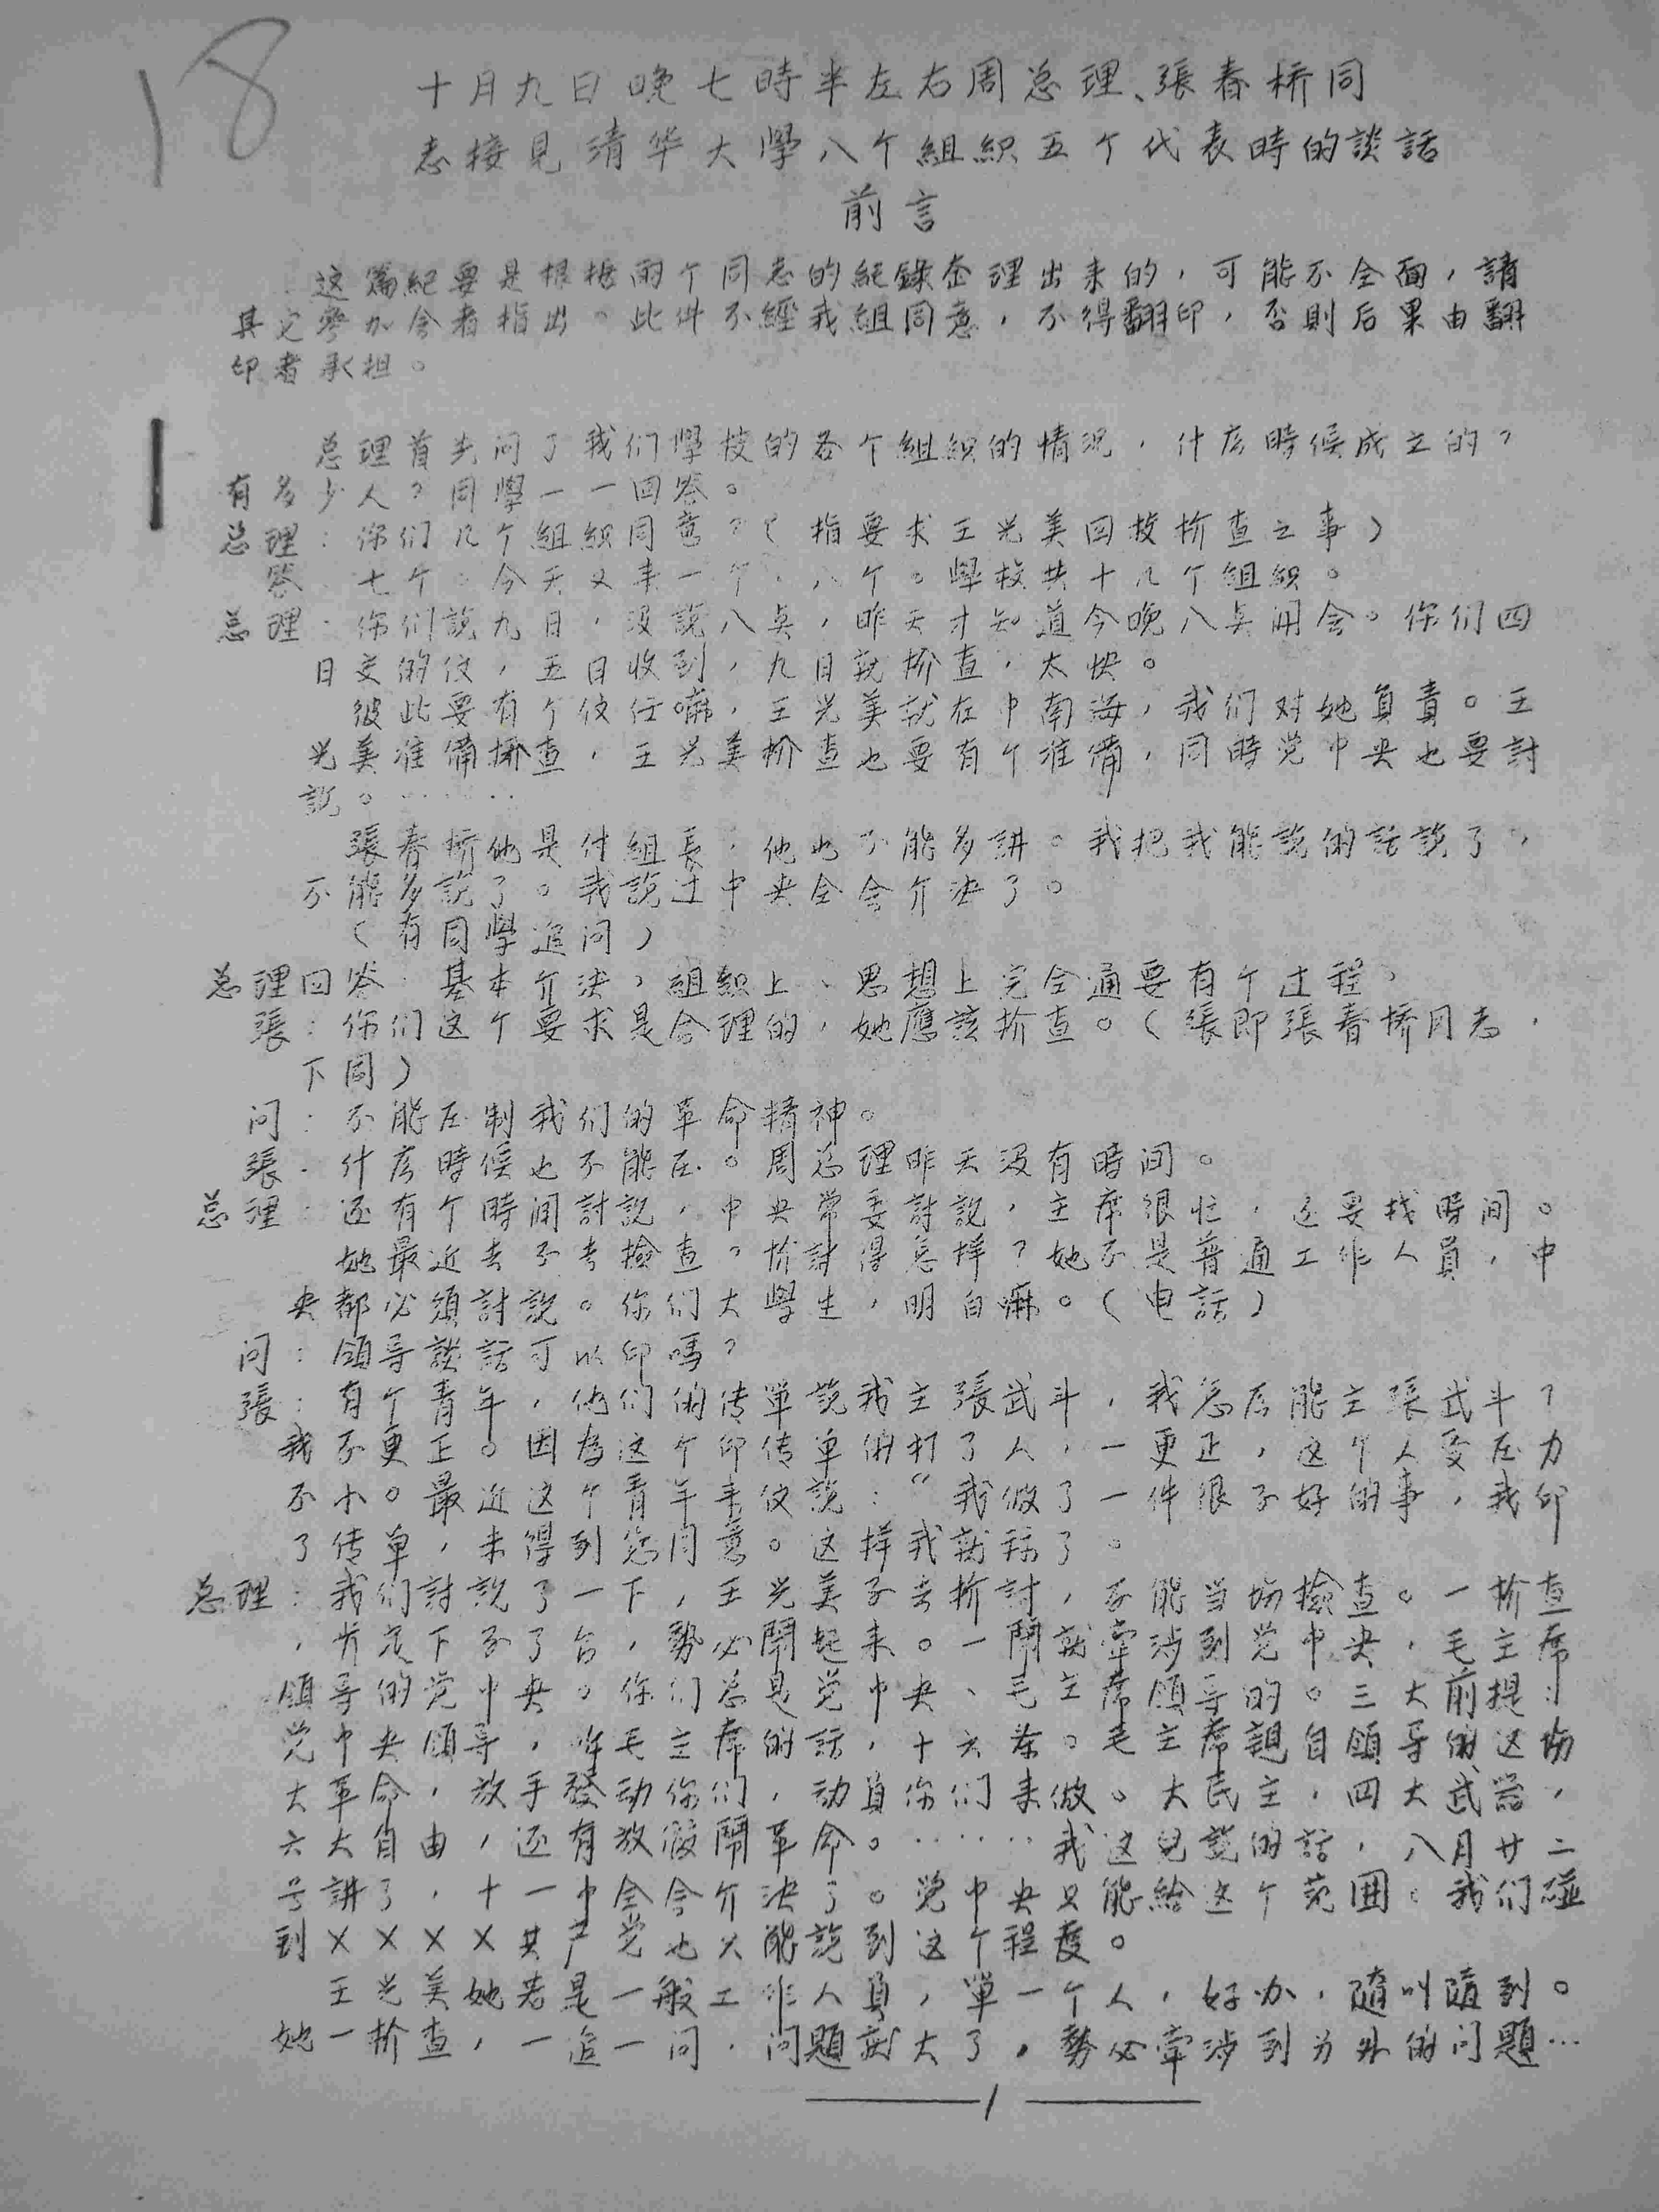 18
十月九日晚七時半左右周总理、張春桥同
志接見清华大學八个組織五个代表時的談話
前言
这篇紀要是根据两个同志的紀錄整理出来的，可能不全面，請
其它参加会者指出。此件不經我組同意，不得翻印，否則后果由翻
印者承担。
总理首先问了我们學校的各个組織的情況，什么時候成立的？
有多少人？同學一一回答。
总理：你们几个組織同意？（指要求王光美回校検查之事）
答：七个。今天又来一个，八个。學校共十几个組織。
总理：你们說九日，没說八点，昨天才知道今晚八点開会。你们四
日交的信，五日收到，九日就検查，太快。
彼此要有个信任嘛，王光美就在中南海，我们对她負責。王
光美准備検查，王光美検查也要有个准備，同時党中央也要討
說。……
張春桥他是付組長，他也不能多講。我把我能說的話說了，
不能多說了。我說过中央全会介决了。
（有同學追问）
总理回答：基本介决，組織上、思想上完全通要有个过程，
張：你们这个要求是合理的，她應該検查。（張即張春桥同志，
下同）
问：不能压制我们的革命精神。
張：什么時候也不能压。周总理昨天没有時间。
总理：还有个時间討說，中央常委討說，主席很忙，还要找時间。
她最近去不去檢查？検討得怎样？她不是普通工作人員，中
央都必須討說。你们大學生，明白嘛。（电話）
问：領导談話可以印嗎？
張：有个青年，他们的传單說我主張武斗，我怎么能主張武斗？
我不更正。因為这个印传单的打了人，一更正，这个人受压力
不小。最近这个青年来信說：“我做了一件很不好的事，我印
了传单，未得到您同意。这样我就 了。
总理：我们討說了一下，王光美不去検討，不能当場檢查。一検查
，肯定下不了台，勢必鬧起来。一鬧就牽涉到党中央，毛主席
領导的党中央。你们总是党中央、毛主席領导的。三大前提：
党中央領导，听毛主席的話，十六条。毛主席親自領导的这場
大革命，放手發动你们，动員你们来做。大民主，四大武器，
六大自由，还有放假鬧革命。……我这兒說的話，八月廿二
号講了，十一中全会介决了。党中央只能給这个范围。我们碰
到××××共产党也只能說到这个程度。
王光美她若是一般工作人員，單一个人，好办，隨叫隨到。
她一検查，一追一问，问題就大了，勢必牽涉到另外的问題…
1